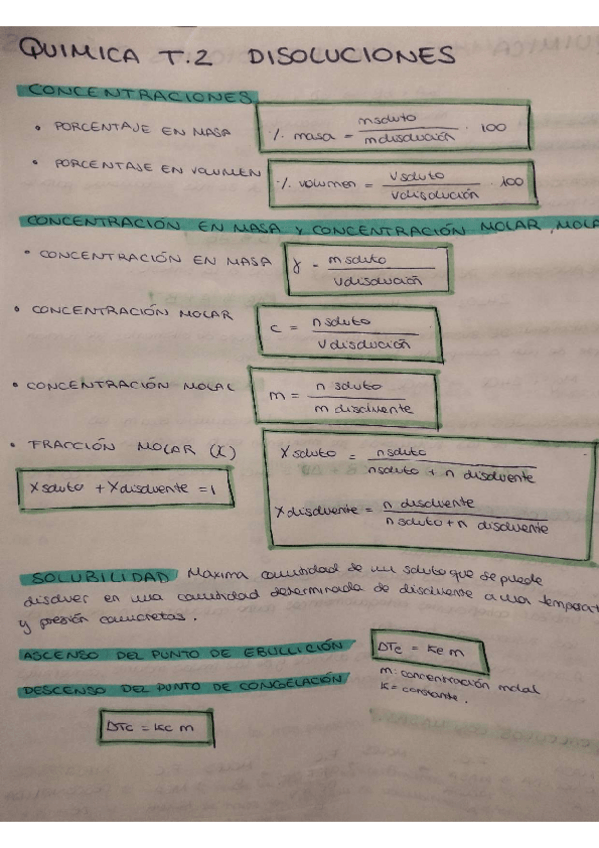 QUIMICA T.2 DISOLUCIONES
CONCENTRACIONES
• PORCENTAJE EN MASA
% masa = m soluto / m disolución · 100
• PORCENTAJE EN VOLUMEN
% volumen = V soluto / V disolución · 100
CONCENTRACIÓN EN MASA Y CONCENTRACIÓN MOLAR, MOLA
• CONCENTRACIÓN EN MASA
γ = m soluto / V disolución
• CONCENTRACIÓN MOLAR
c = n soluto / V disolución
• CONCENTRACIÓN MOLAL
m = n soluto / m disolvente
• FRACCIÓN MOLAR (X)
X soluto + X disolvente = 1
X soluto = n soluto / n soluto + n disolvente
X disolvente = n disolvente / n soluto + n disolvente
SOLUBILIDAD Máxima cantidad de un soluto que se puede
disolver en una cantidad determinada de disolvente a una temperat
y presión concretas.
ASCENSO DEL PUNTO DE EBULLICIÓN
ΔTe = Ke m
m: concentración molal
K = constante.
DESCENSO DEL PUNTO DE CONGELACIÓN
ΔTc = Kc m